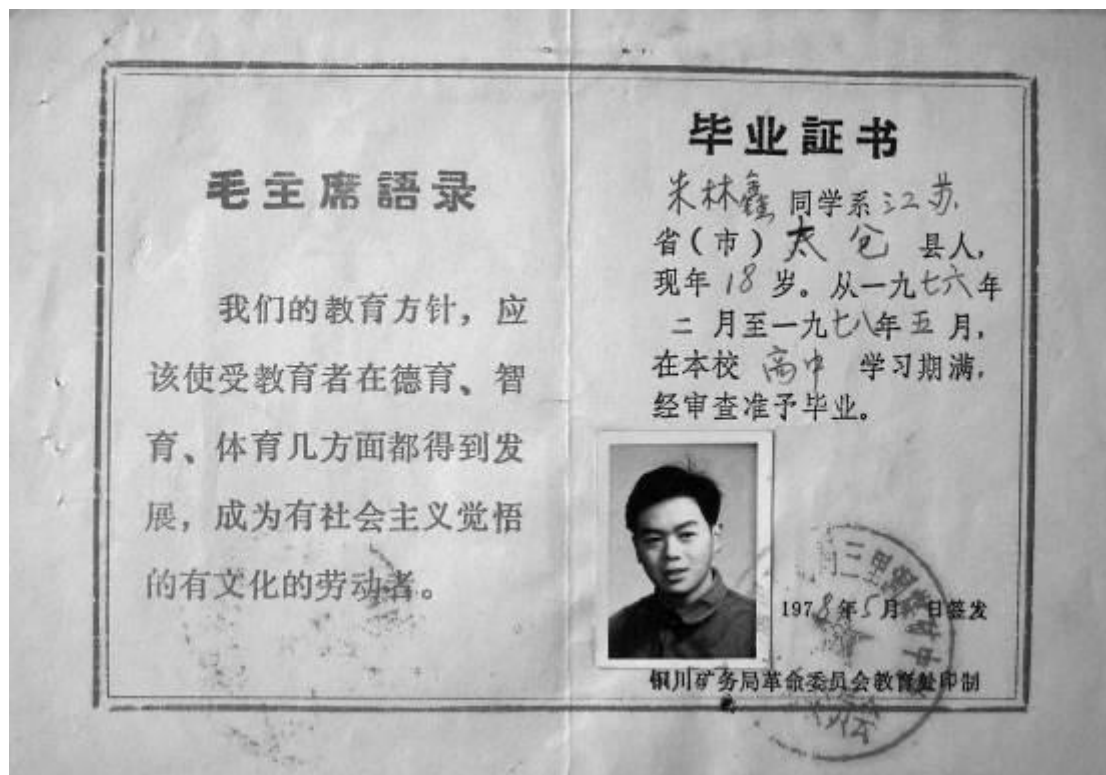 毛主席語录
我们的教育方针，应
该使受教育者在德育、智
育、体育几方面都得到发
展，成为有社会主义觉悟
的有文化的劳动者。
毕业証书
朱林鑫同学系江苏
省（市）太仓县人，
现年18岁。从一九七六年
二月至一九七八年五月，
在本校高中学习期满，
经审查准予毕业。
1978年5月 日签发
铜川矿务局革命委员会教育处印制
三里洞煤矿中